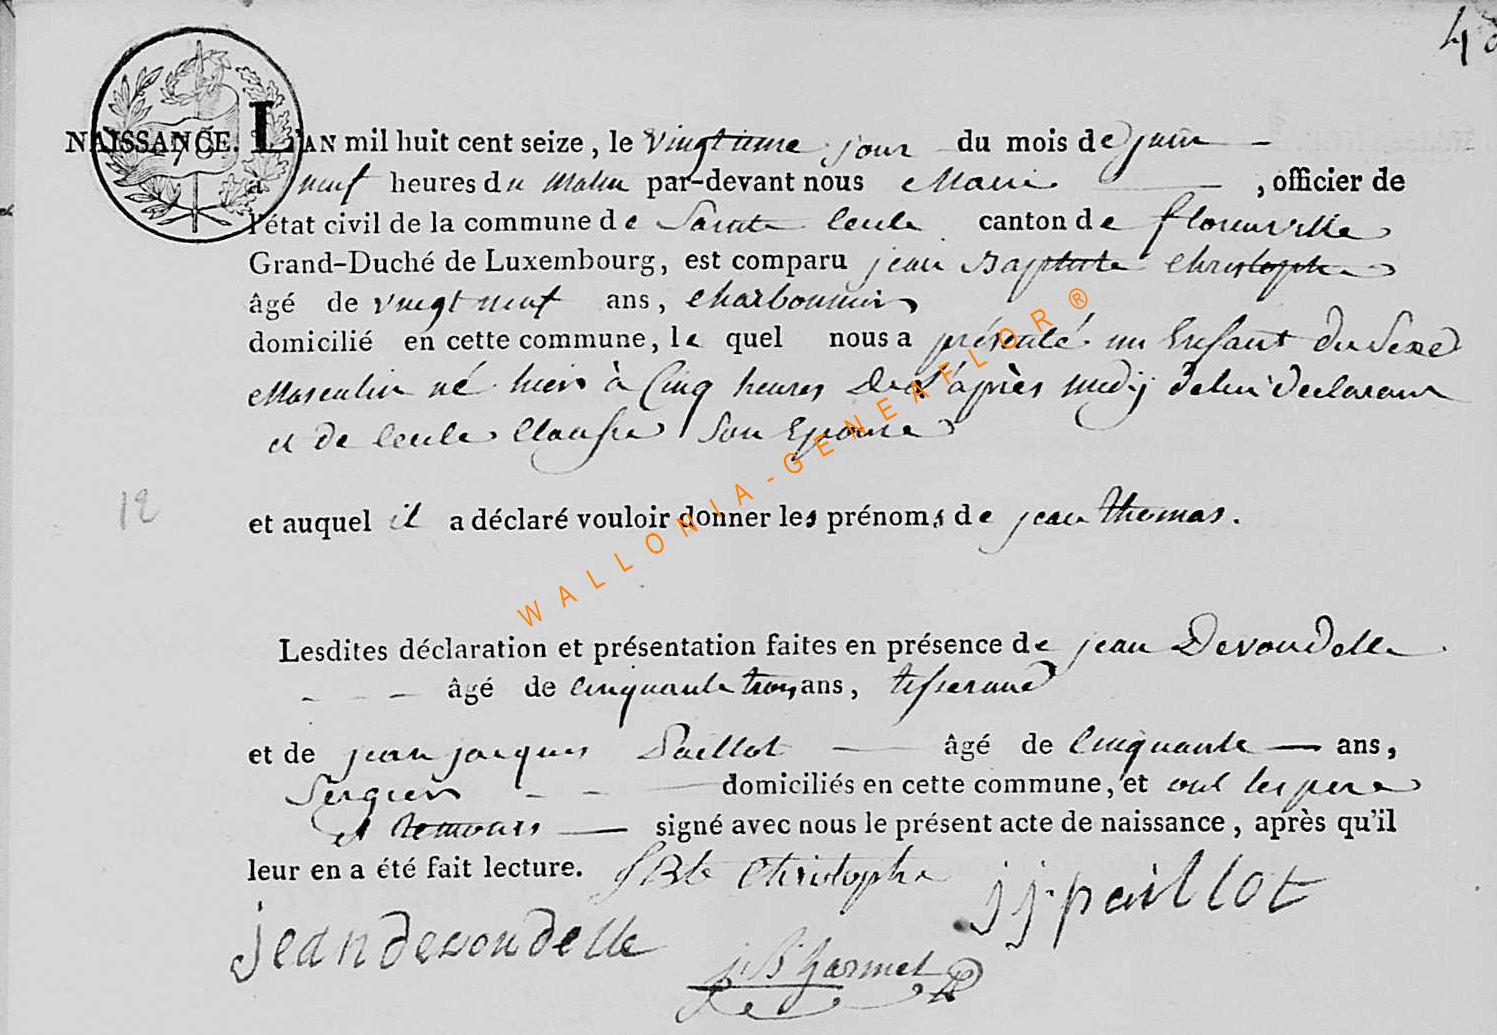 48
NAISSANCE. L'AN mil huit cent seize, le vingtieme jour du mois de juin
a neuf heures du matin par-devant nous Maire, officier de
l'état civil de la commune de Sainte Cecile canton de florenville
Grand-Duché de Luxembourg, est comparu jean Baptiste Christophe
âgé de vingt neuf ans, charbonnier
domicilié en cette commune, le quel nous a présenté un Enfant du Sexe
Masculin né hier à Cinq heures De L'après midy De lui Declarant
et de Cecile Clausse Son Epouse
12
et auquel il a déclaré vouloir donner les prénoms de jean thomas.
WALLONIA-GENEAFLOR®
Lesdites déclaration et présentation faites en présence de jean Devoudelle
âgé de Cinquante trois ans, tisserand
et de jean jacques Paillot âgé de Cinquante ans,
Sergier domiciliés en cette commune, et ont les pere
et temoins signé avec nous le présent acte de naissance, après qu'il
leur en a été fait lecture. JBte Christophe
jj paillot
jean devoudelle